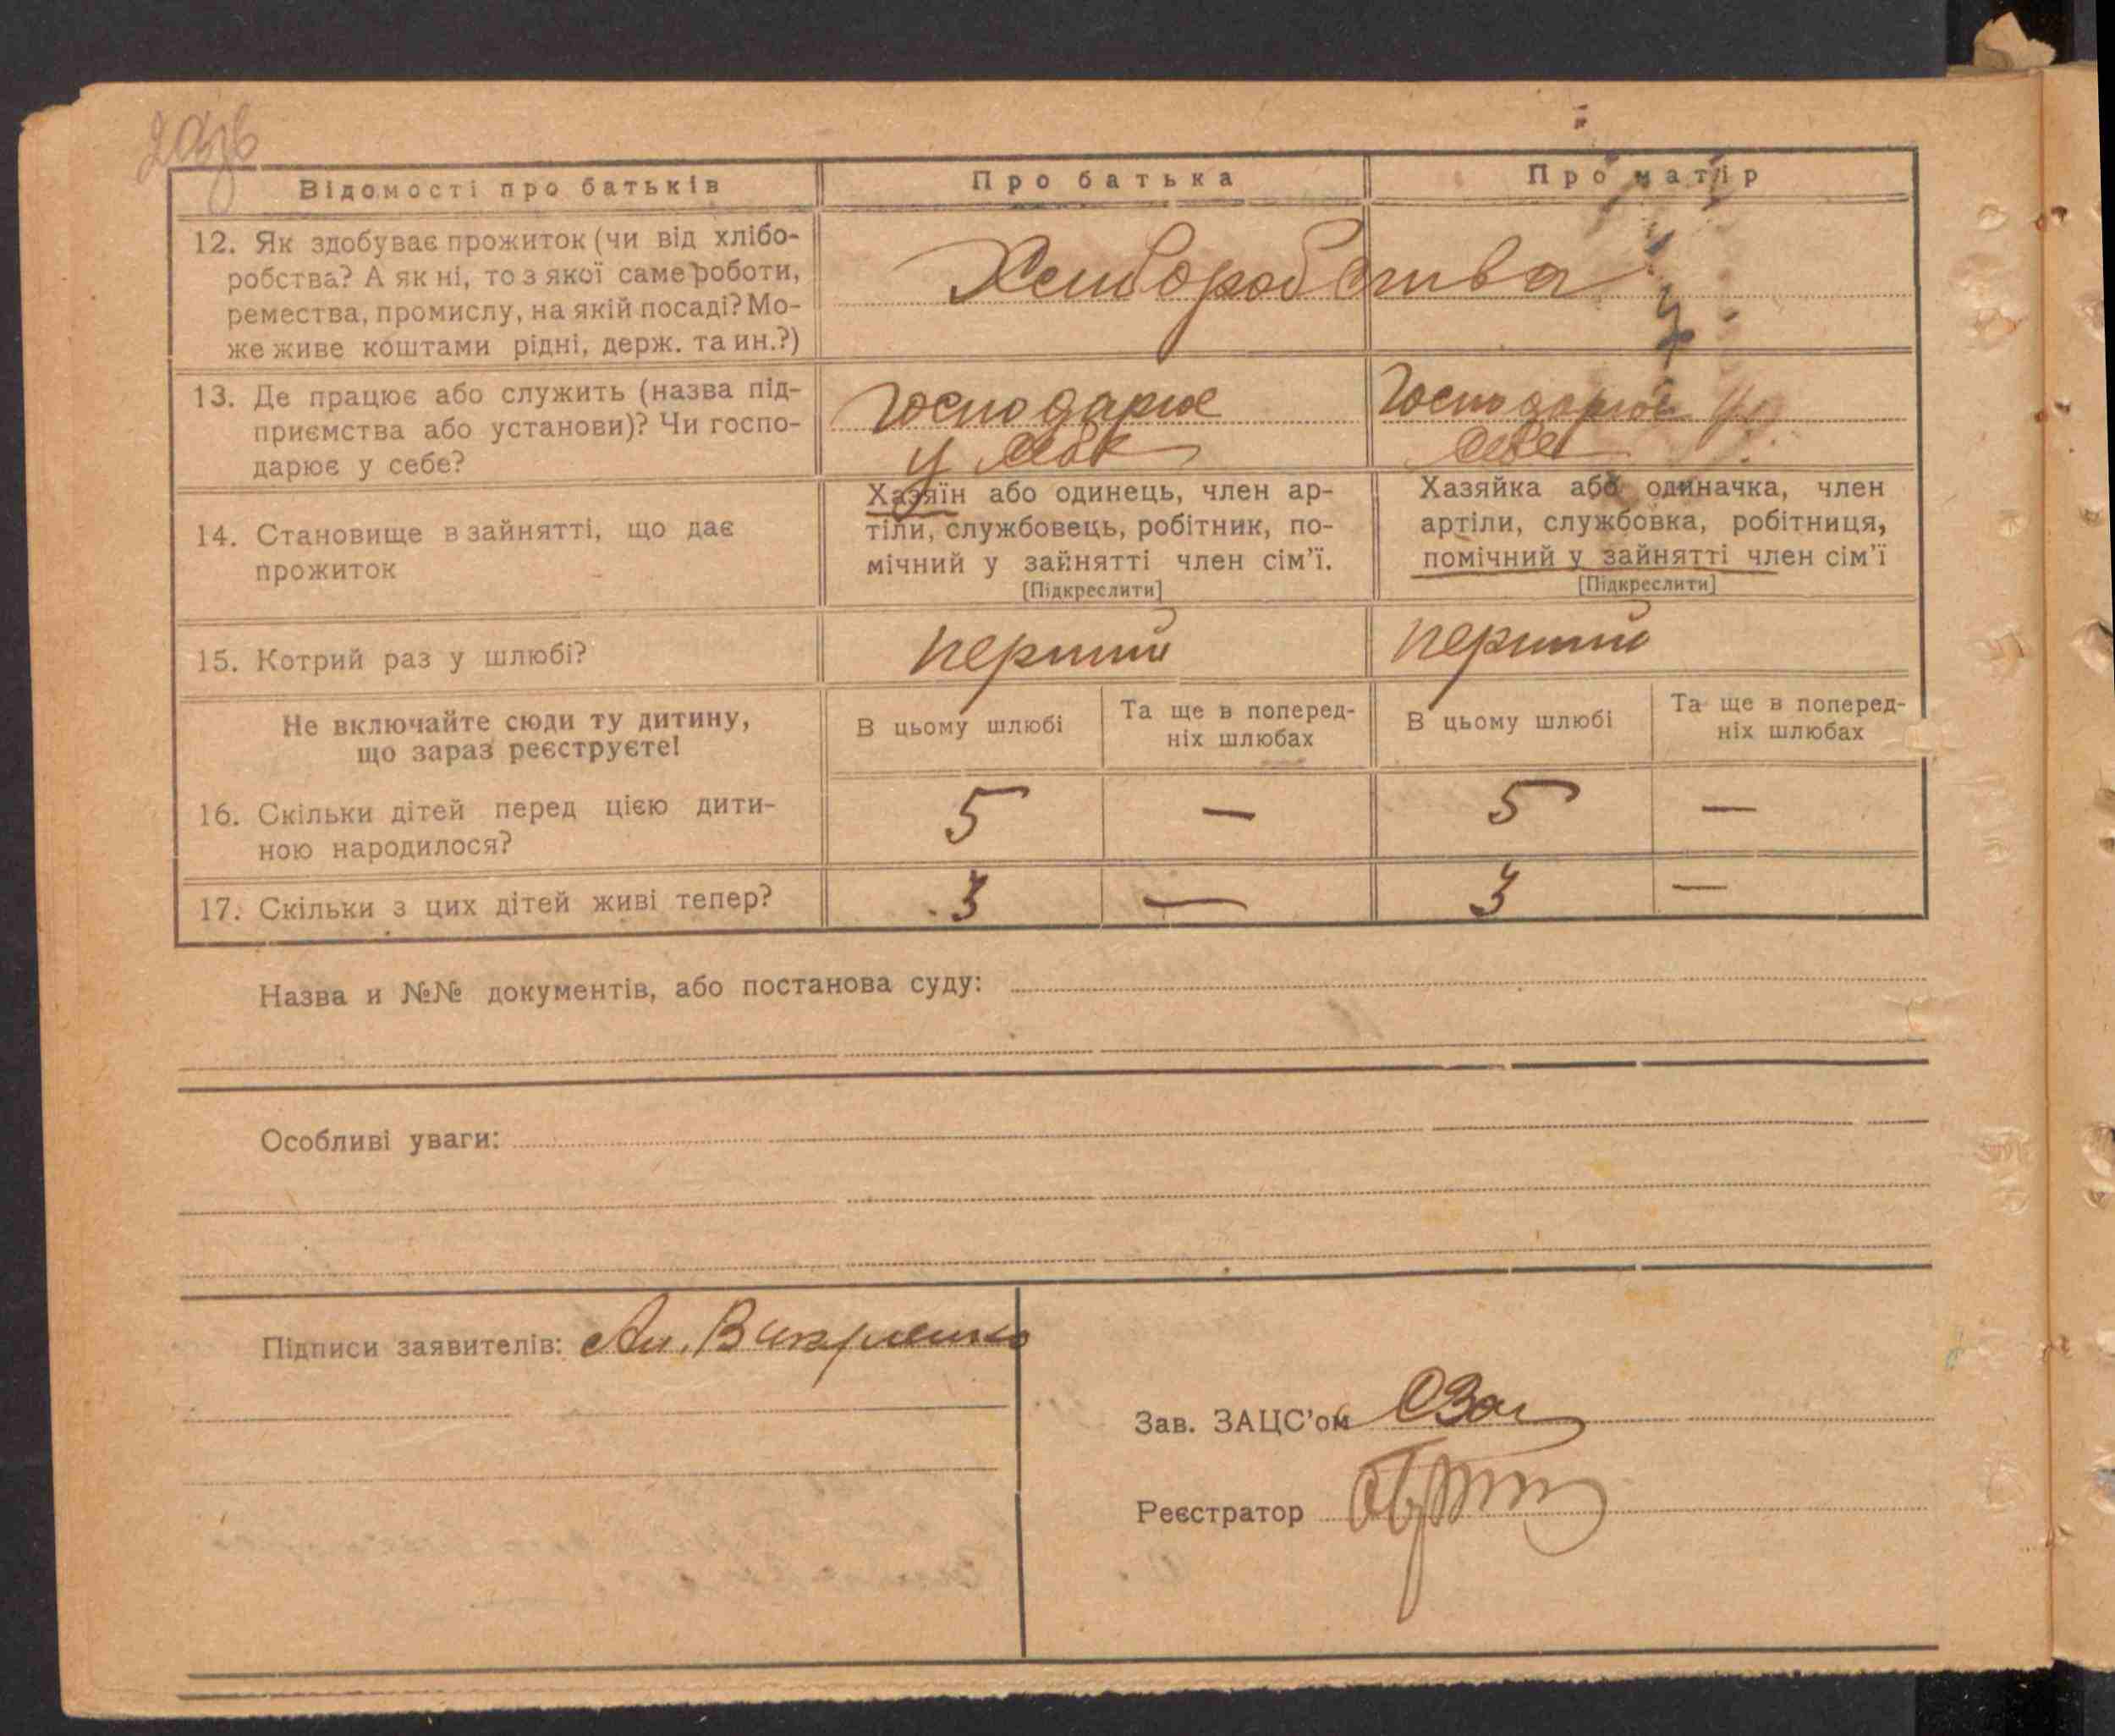 Відомості про батьків
Про батька
Про матір
12. Як здобуває прожиток (чи від хлібо-
робства? А як ні, то з якої саме роботи,
ремества, промислу, на якій посаді? Мо-
же живе коштами рідні, держ. та ин.?)
Хлиборобства
13. Де працює або служить (назва під-
приємства або установи)? Чи госпо-
дарює у себе?
Господарює
у себе
Господарює у
себе
14. Становище в зайнятті, що дає
прожиток
Хазяїн або одинець, член ар-
тіли, службовець, робітник, по-
мічний у зайнятті член сім'ї.
[Підкреслити]
Хазяйка або одиначка, член
артіли, службовка, робітниця,
помічний у зайнятті член сім'ї
[Підкреслити]
15. Котрий раз у шлюбі?
перший
перший
Не включайте сюди ту дитину,
що зараз реєструєте!
В цьому шлюбі
Та ще в поперед-
ніх шлюбах
В цьому шлюбі
Та ще в поперед-
ніх шлюбах
16. Скільки дітей перед цією дити-
ною народилося?
5
—
5
—
17. Скільки з цих дітей живі тепер?
3
—
3
—
Назва и №№ документів, або постанова суду:
Особливі уваги:
Підписи заявителів:
Зав. ЗАЦС'ом
Реєстратор